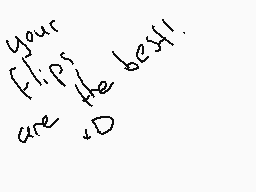 your
flips
are the best!!
:D